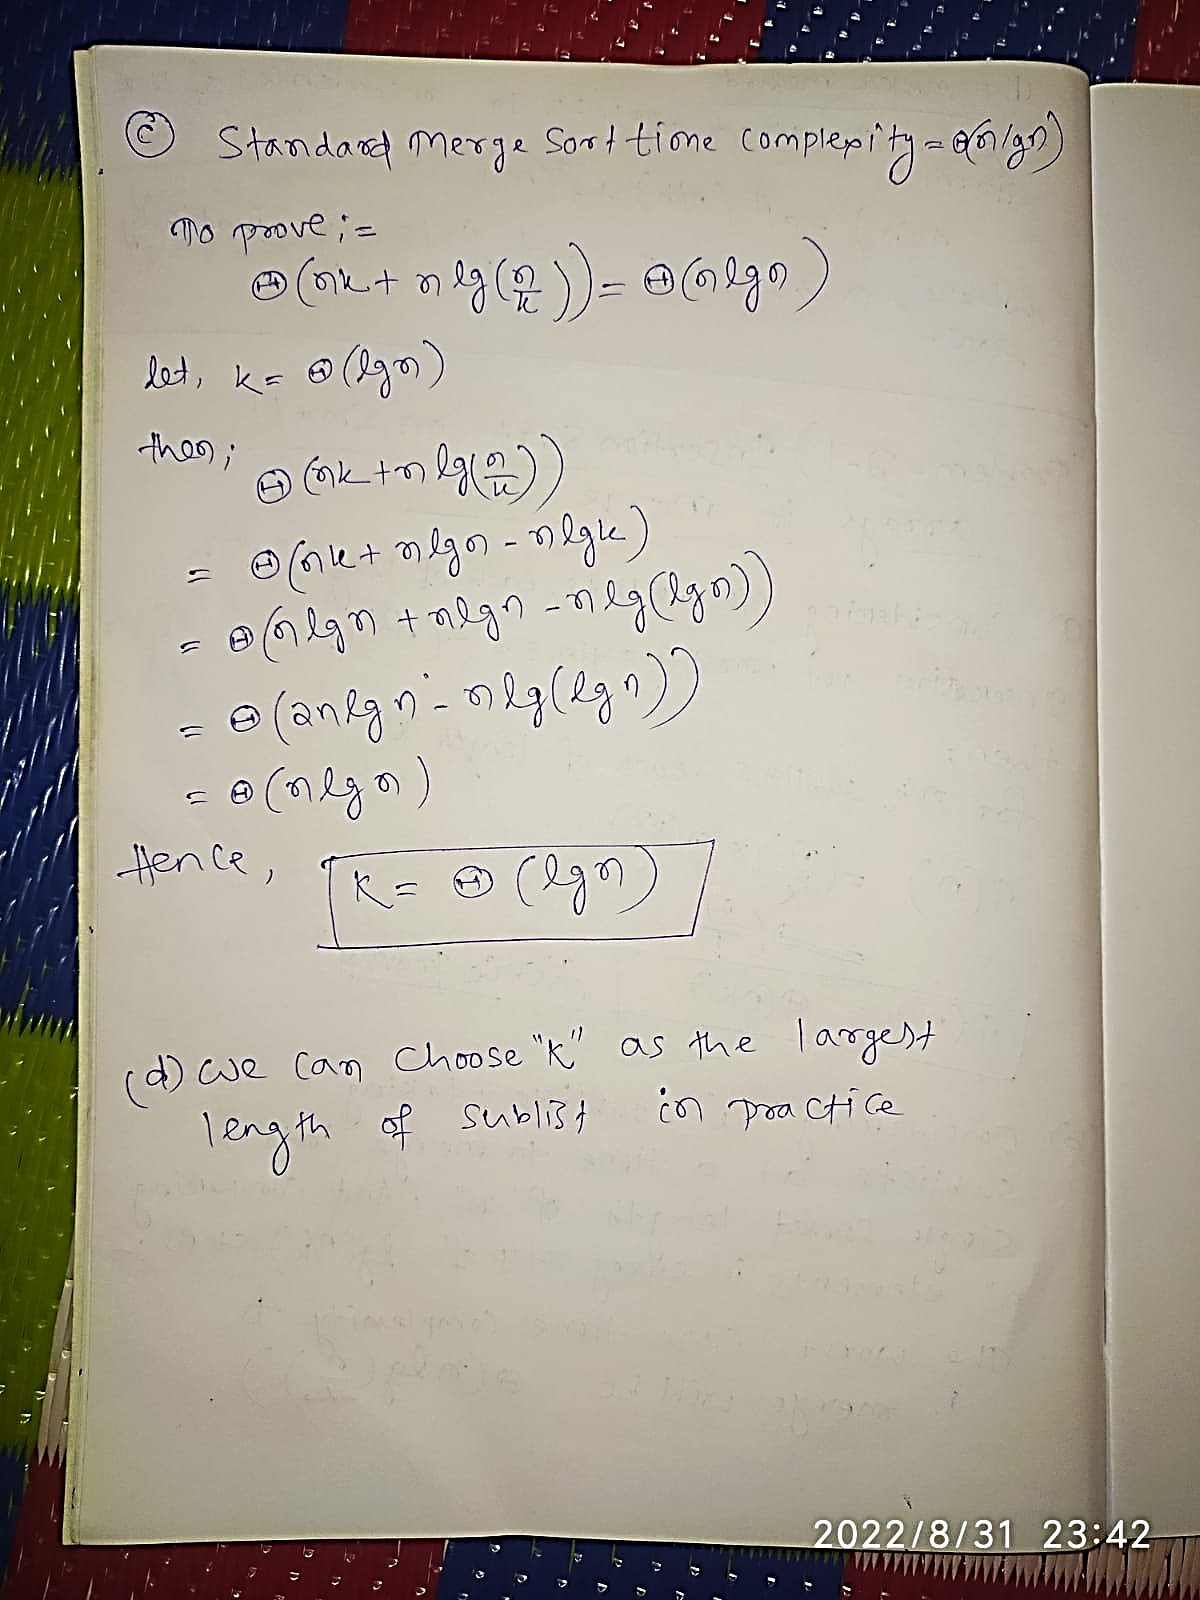 (c) Standard Merge Sort time complexity = Θ(n lg n)
To prove ;=
Θ(nk + n lg(n/k)) = Θ(n lg n)
let, k = Θ(lg n)
then;
Θ(nk + n lg(n/k))
= Θ(nk + n lg n - n lg k)
= Θ(n lg n + n lg n - n lg(lg n))
= Θ(2n lg n - n lg(lg n))
= Θ(n lg n)
Hence, K = Θ(lg n)
(d) We can choose "K" as the largest
length of sublist in practice
2022/8/31 23:42